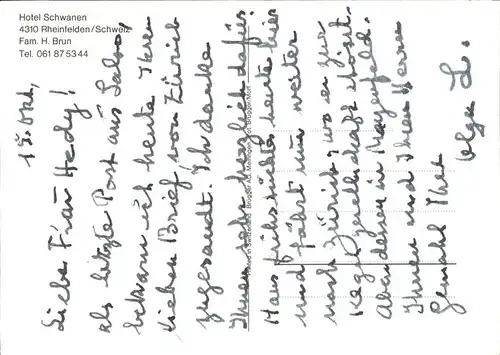 Hotel Schwanen
4310 Rheinfelden/Schweiz
Fam. H. Brun
Tel. 061 87 53 44
15. Okt.
Liebe Frau Hedy!
als letzte Post aus
bekam ich heute Ihren
lieben Brief von Zürich
zugesandt. Ich danke
Ihnen sehr herzlich dafür.
Hans frühstückte heute hier
und fährt nun weiter
nach Zürich, wo er zur
Kegelgesellschaft stösst.
Abendessen in Mayenfeld.
Ihnen und Ihrem Herrn
Gemahl Ihre
Olga L.